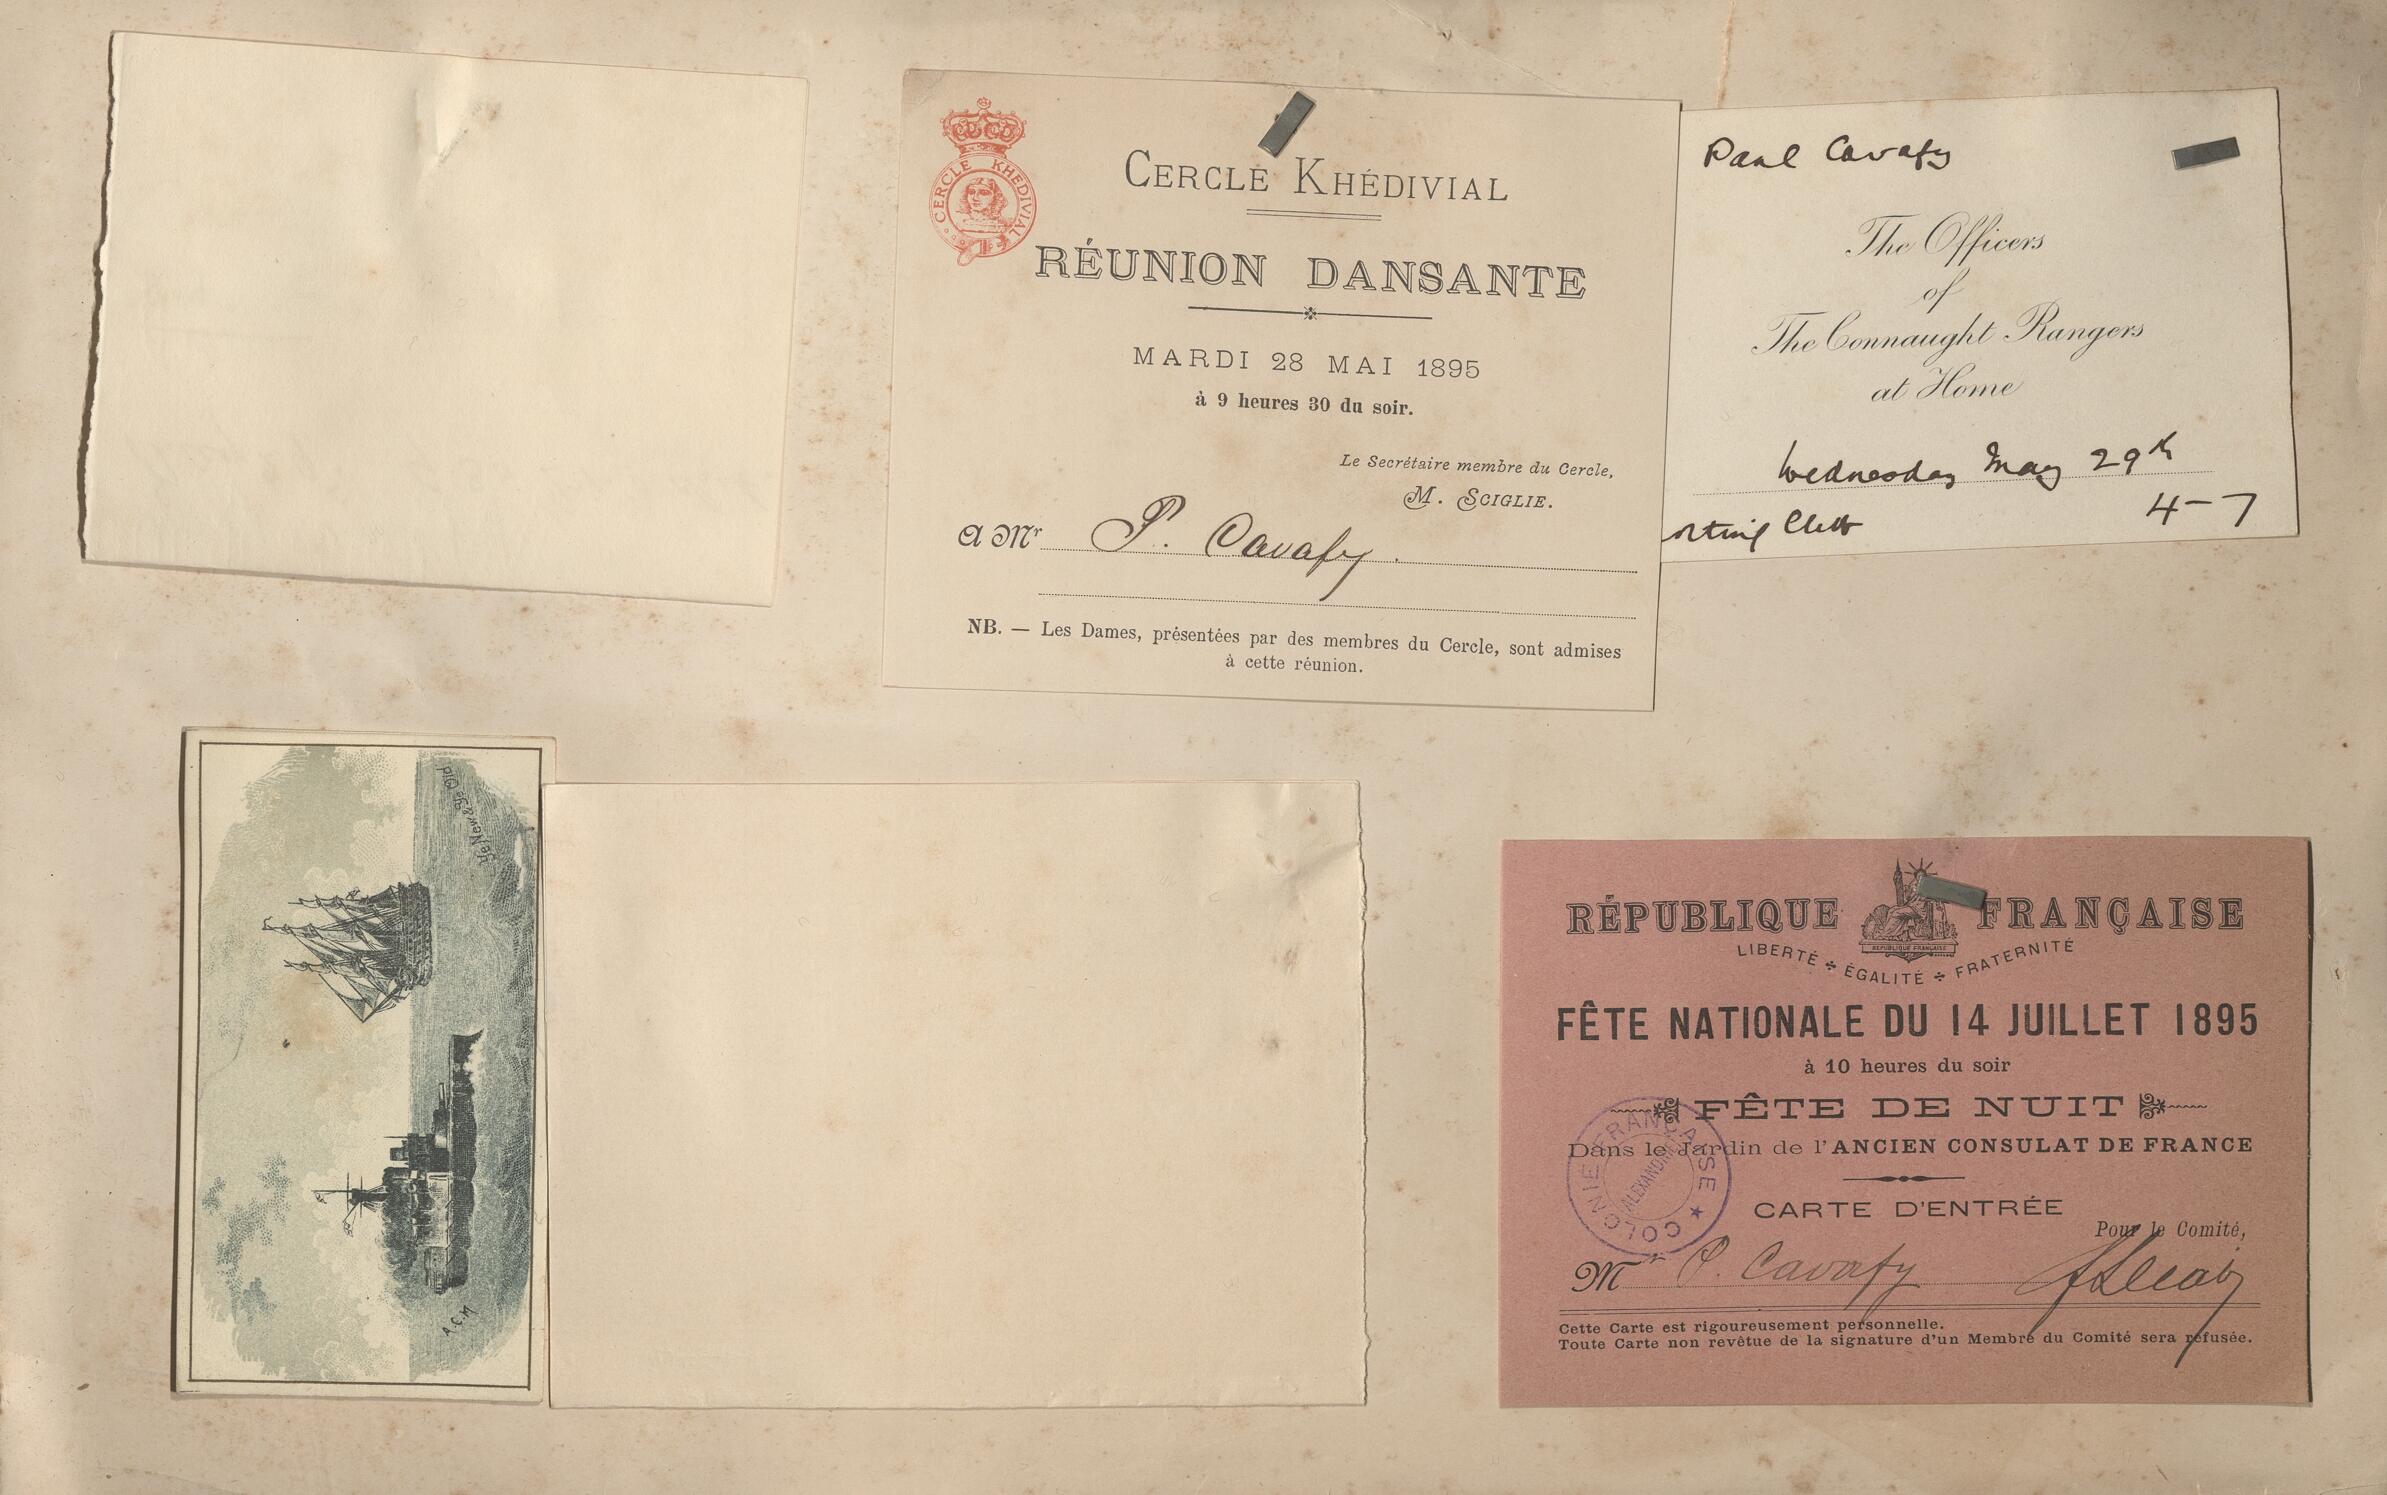 CERCLE KHEDIVIAL
CERCLE KHÉDIVIAL
RÉUNION DANSANTE
MARDI 28 MAI 1895
à 9 heures 30 du soir.
Le Secrétaire membre du Cercle,
M. SCIGLIE.
A Mr P. Cavafy.
NB. — Les Dames, présentées par des membres du Cercle, sont admises
à cette réunion.
Paul Cavafy
The Officers
of
The Connaught Rangers
at Home
Wednesday May 29th
4-7
orting Club
Ye New & Ye Old
A.C.M
RÉPUBLIQUE FRANÇAISE
REPUBLIQUE FRANÇAISE
LIBERTÉ ÷ ÉGALITÉ ÷ FRATERNITÉ
FÊTE NATIONALE DU 14 JUILLET 1895
à 10 heures du soir
FÊTE DE NUIT
Dans le Jardin de l'ANCIEN CONSULAT DE FRANCE
COLONIE FRANÇAISE ★
ALEXANDRIE
CARTE D'ENTRÉE
Pour le Comité,
Mr P. Cavafy
Cette Carte est rigoureusement personnelle.
Toute Carte non revêtue de la signature d'un Membre du Comité sera refusée.